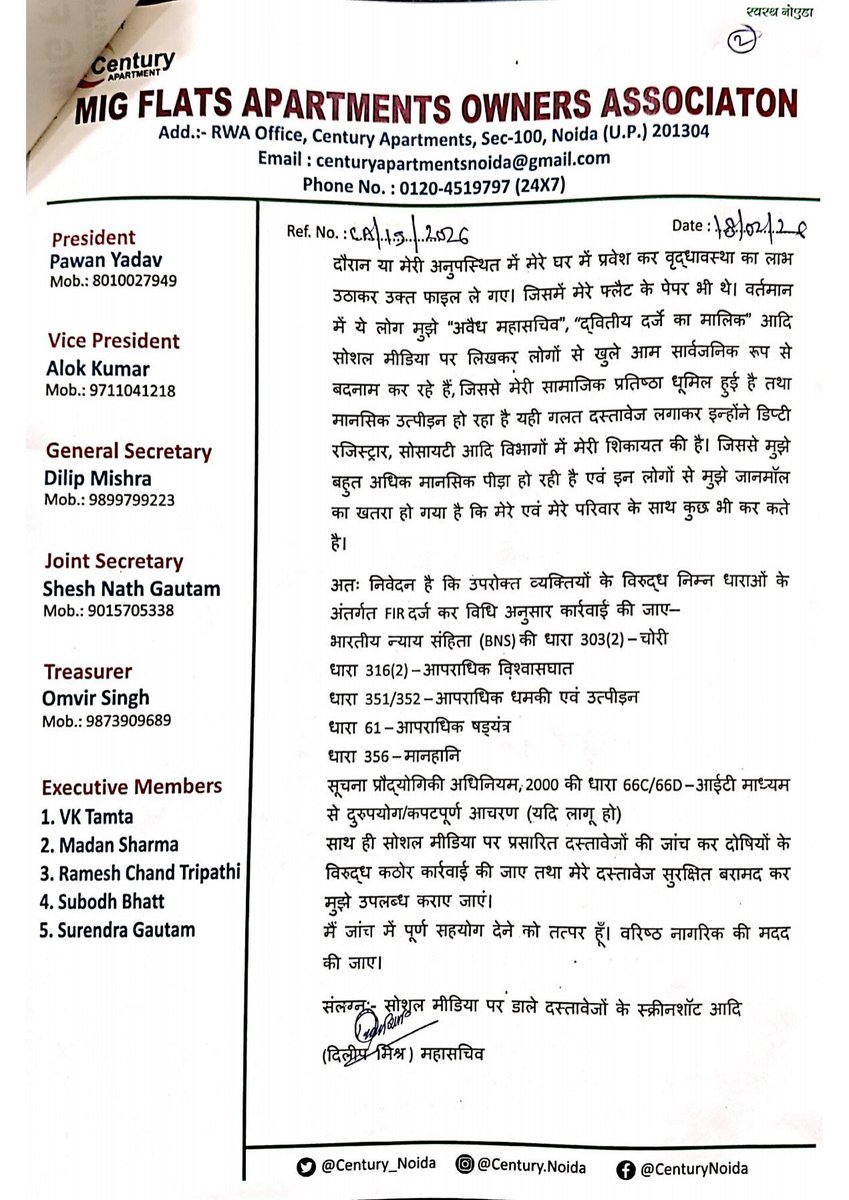 स्वस्थ नोएडा
2
Century
APARTMENT
MIG FLATS APARTMENTS OWNERS ASSOCIATON
Add.:- RWA Office, Century Apartments, Sec-100, Noida (U.P.) 201304
Email : centuryapartmentsnoida@gmail.com
Phone No. : 0120-4519797 (24X7)
President
Pawan Yadav
Mob.: 8010027949
Vice President
Alok Kumar
Mob.: 9711041218
General Secretary
Dilip Mishra
Mob.: 9899799223
Joint Secretary
Shesh Nath Gautam
Mob.: 9015705338
Treasurer
Omvir Singh
Mob.: 9873909689
Executive Members
1. VK Tamta
2. Madan Sharma
3. Ramesh Chand Tripathi
4. Subodh Bhatt
5. Surendra Gautam
Ref. No. : CA/13/2026
Date : 18/02/26
दौरान या मेरी अनुपस्थित में मेरे घर में प्रवेश कर वृद्धावस्था का लाभ
उठाकर उक्त फाइल ले गए। जिसमें मेरे फ्लैट के पेपर भी थे। वर्तमान
में ये लोग मुझे "अवैध महासचिव", "द्वितीय दर्जे का मालिक" आदि
सोशल मीडिया पर लिखकर लोगों से खुले आम सार्वजनिक रूप से
बदनाम कर रहे हैं, जिससे मेरी सामाजिक प्रतिष्ठा धूमिल हुई है तथा
मानसिक उत्पीड़न हो रहा है यही गलत दस्तावेज लगाकर इन्होंने डिप्टी
रजिस्ट्रार, सोसायटी आदि विभागों में मेरी शिकायत की है। जिससे मुझे
बहुत अधिक मानसिक पीड़ा हो रही है एवं इन लोगों से मुझे जानमॉल
का खतरा हो गया है कि मेरे एवं मेरे परिवार के साथ कुछ भी कर कते
है।
अतः निवेदन है कि उपरोक्त व्यक्तियों के विरुद्ध निम्न धाराओं के
अंतर्गत FIR दर्ज कर विधि अनुसार कार्रवाई की जाए–
भारतीय न्याय संहिता (BNS) की धारा 303(2) – चोरी
धारा 316(2) – आपराधिक विश्वासघात
धारा 351/352 – आपराधिक धमकी एवं उत्पीड़न
धारा 61 – आपराधिक षड्यंत्र
धारा 356 – मानहानि
सूचना प्रौद्योगिकी अधिनियम, 2000 की धारा 66C/66D – आईटी माध्यम
से दुरुपयोग/कपटपूर्ण आचरण (यदि लागू हो)
साथ ही सोशल मीडिया पर प्रसारित दस्तावेजों की जांच कर दोषियों के
विरुद्ध कठोर कार्रवाई की जाए तथा मेरे दस्तावेज सुरक्षित बरामद कर
मुझे उपलब्ध कराए जाएं।
मैं जांच में पूर्ण सहयोग देने को तत्पर हूँ। वरिष्ठ नागरिक की मदद
की जाए।
संलग्नः- सोशल मीडिया पर डाले दस्तावेजों के स्क्रीनशॉट आदि
(दिलीप मिश्र) महासचिव
@Century_Noida @Century.Noida @CenturyNoida